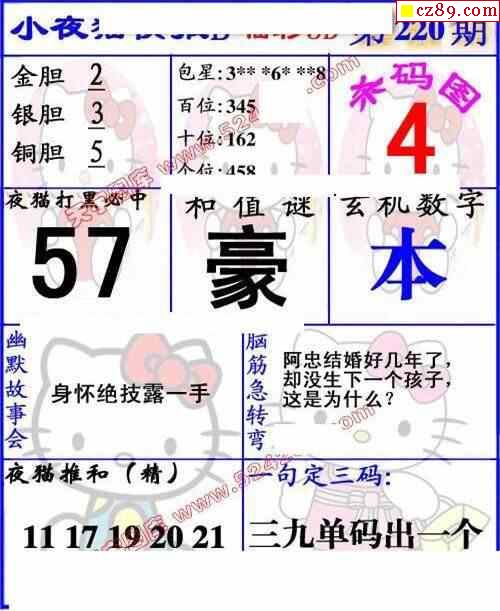 cz89.com
小夜猫
第220期
金胆 2
银胆 3
铜胆 5
包星:3** *6* **8
百位:345
十位:162
个位:458
杀码图
4
夜猫打黑必中
57
和值谜
豪
玄机数字
本
幽默故事会
身怀绝技露一手
脑筋急转弯
阿忠结婚好几年了，
却没生下一个孩子，
这是为什么？
夜猫推和（精）
11 17 19 20 21
一句定三码:
三九单码出一个